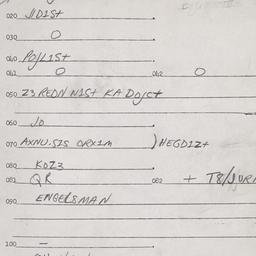 020 JID1St
030 O
040 POJL1St
041 O 042 O
050 Z3 REDN N1St KA Dojct
060 Jo
070 AXNU.S1S ORX1M )HEGD1Z+
080 KOZ3
081 QR 082 + T8/JURN
090 ENGELSMAN
100 -